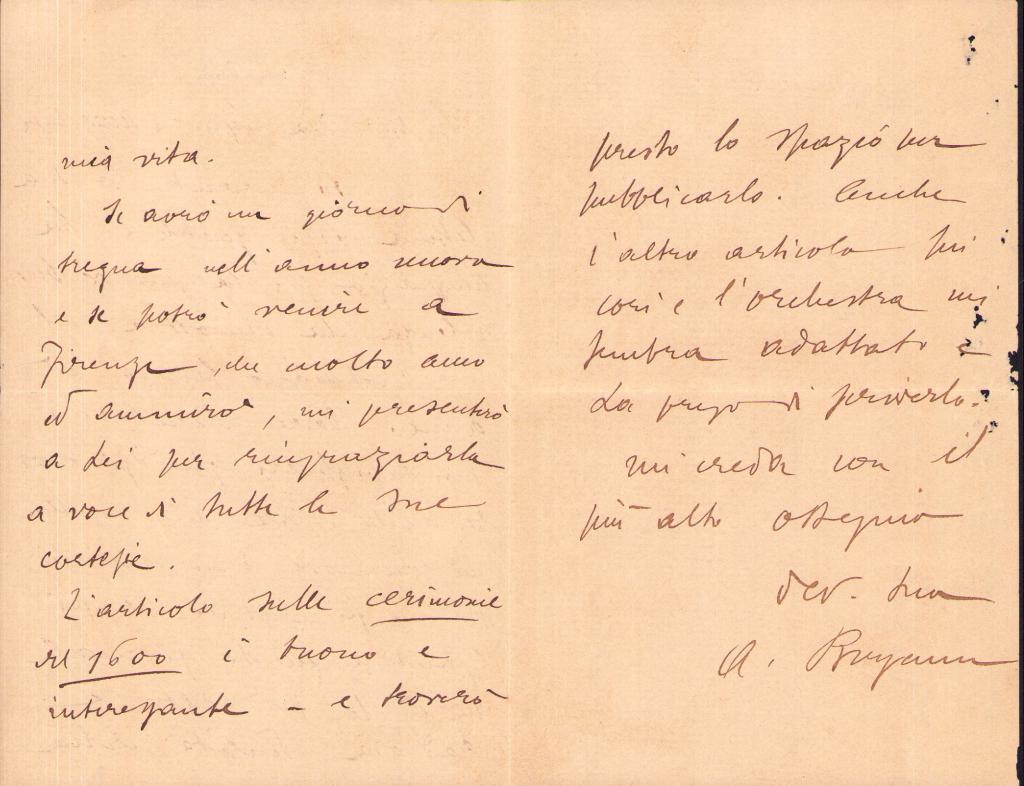 mia vita.
Se avrò un giorno di
tregua nell'anno nuovo
e se potrò venire a
Firenze, che molto amo
ed ammiro, mi presenterò
a Lei per ringraziarla
a voce di tutte le sue
cortesie.
L'articolo sulle cerimonie
del 1600 è buono e
interessante - e troverò
presto lo spazio per
pubblicarlo. Anche
l'altro articolo sui
cori e l'orchestra mi
sembra adattato e
La prego di scriverlo.
Mi creda con il
più alto ossequio
dev. Sua
A.